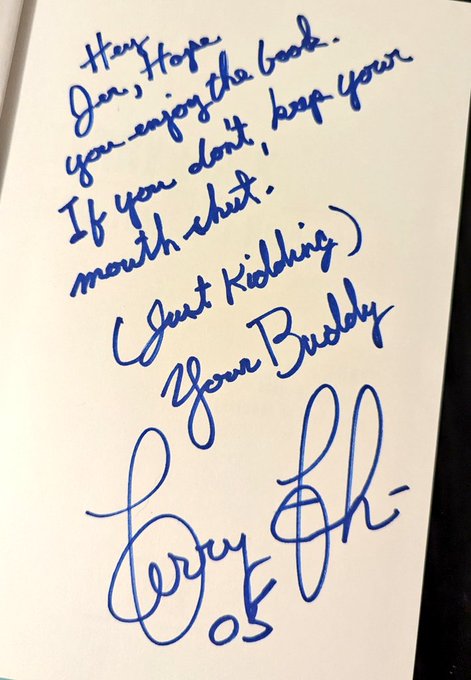 Hey
Jer, Hope
you enjoy the book.
If you don't, keep your
mouth shut.
(Just Kidding)
Your Buddy
Terry
05